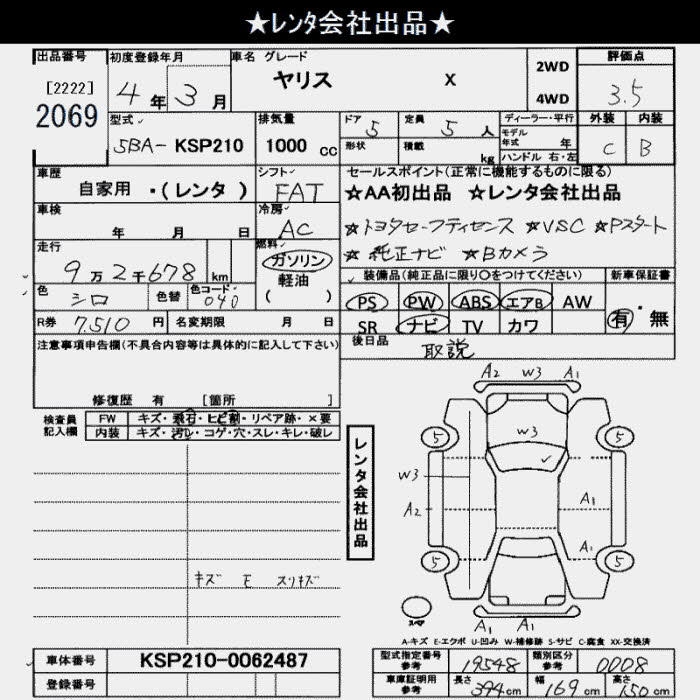 ★レンタ会社出品★
出品番号 初度登録年月 車名 グレード 評価点
[2222] 4年 3月 ヤリス X 2WD 3.5
2069 4WD
型式 5BA-KSP210 排気量 1000 cc ドア 5 定員 5人 ディーラー・平行 外装 内装
形状 積載 kg モデル年式 年 C B
ハンドル 右・左
車歴 自家用・(レンタ) シフト FAT セールスポイント(正常に機能するものに限る)
☆AA初出品 ☆レンタ会社出品
車検 年 月 日 冷房 AC ☆トヨタセーフティセンス ☆VSC ☆Pスタート
走行 9万2千678 km 燃料 ガソリン ☆純正ナビ ☆Bカメラ
軽油
( )
色 シロ 色替 色コード 040 装備品(純正品に限り○をつけてください) 新車保証書
PS PW ABS エアB AW 有・無
R券 7.510 円 名変期限 月 日 SR ナビ TV カワ
注意事項申告欄(不具合内容等は具体的に記入して下さい) 後日品 取説
修復歴 有 [箇所
検査員記入欄 FW キズ・飛石・ヒビ割・リペア跡・×要
内装 キズ・汚レ・コゲ・穴・スレ・キレ・破レ
A2 W3 A1
5 W3 5
レンタ会社出品
W3
A2 A1
A1
5 5
キズ E スリキズ
スペア
A1 A1
A-キズ E-エクボ U-凹み W-補修跡 S-サビ C-腐食 XX-交換済
車体番号 KSP210-0062487 型式指定番号 参考 19548 類別区分 参考 0008
登録番号 車庫証明用 参考 長さ 394 cm 幅 169 cm 高さ 150 cm